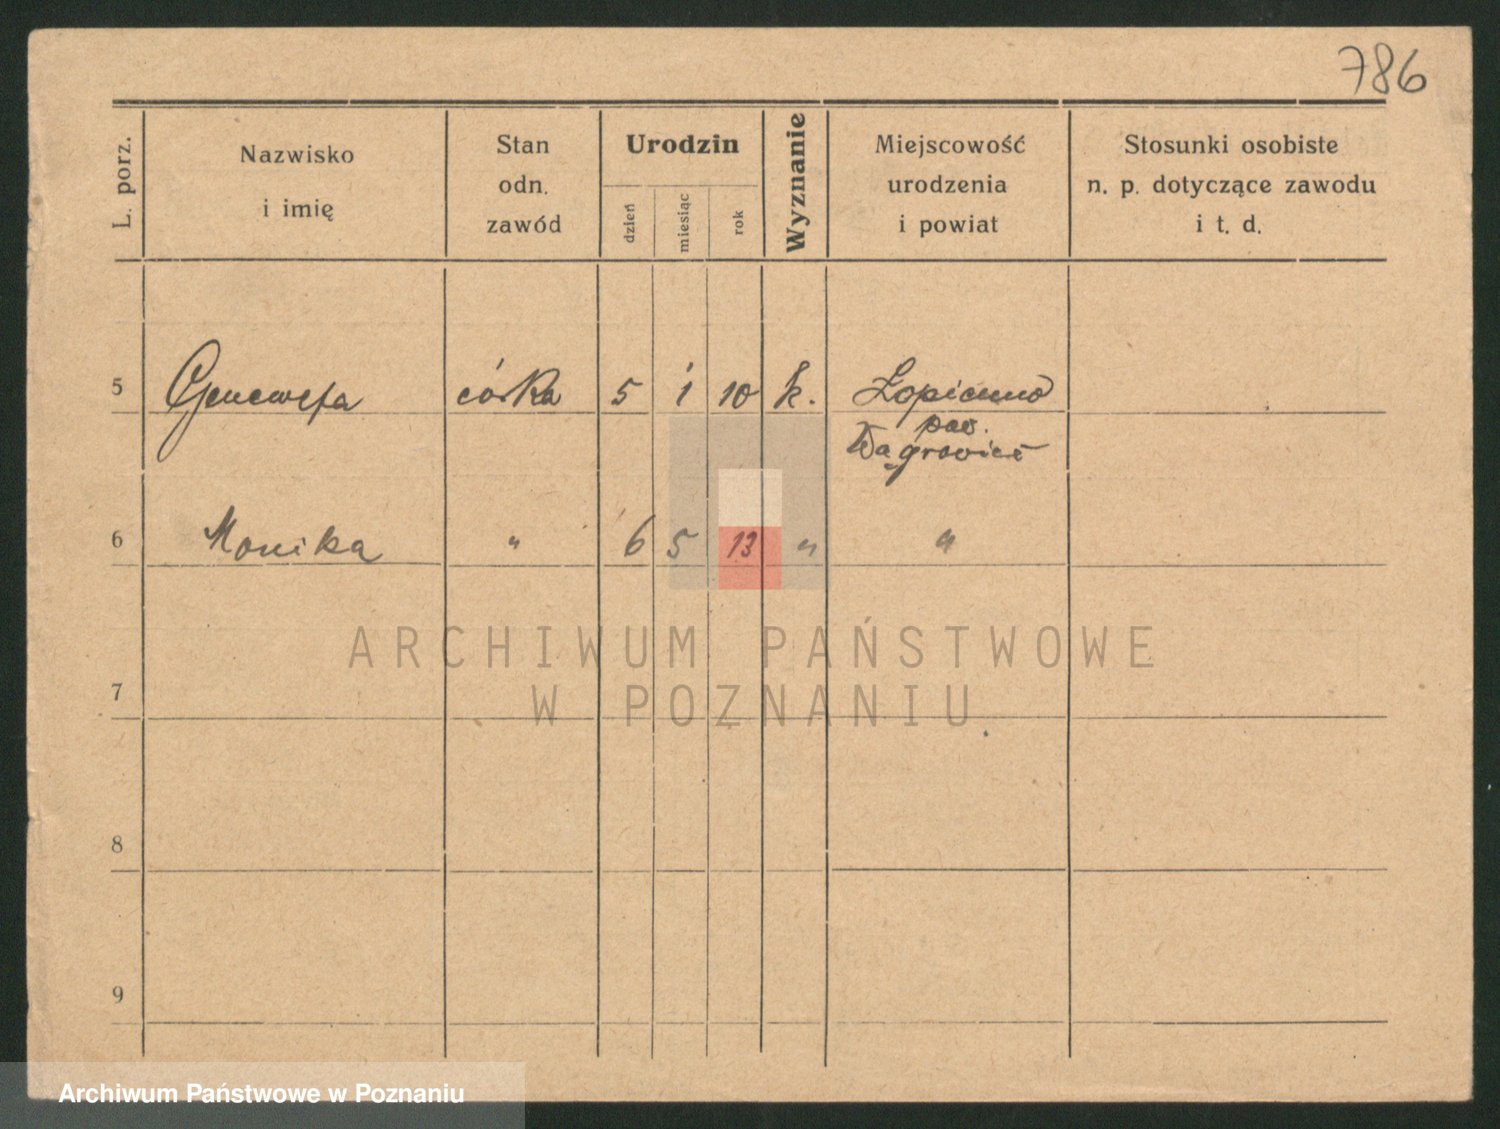 786
L. porz.
Nazwisko
i imię
Stan
odn.
zawód
Urodzin
dzień
miesiąc
rok
Wyznanie
Miejscowość
urodzenia
i powiat
Stosunki osobiste
n. p. dotyczące zawodu
i t. d.
5 Genewefa córka 5 1 10 k. Łopienno
pow.
Wągrowiec
6 Monika " 6 5 13 " "
ARCHIWUM PAŃSTWOWE
W POZNANIU
7
8
9
Archiwum Państwowe w Poznaniu